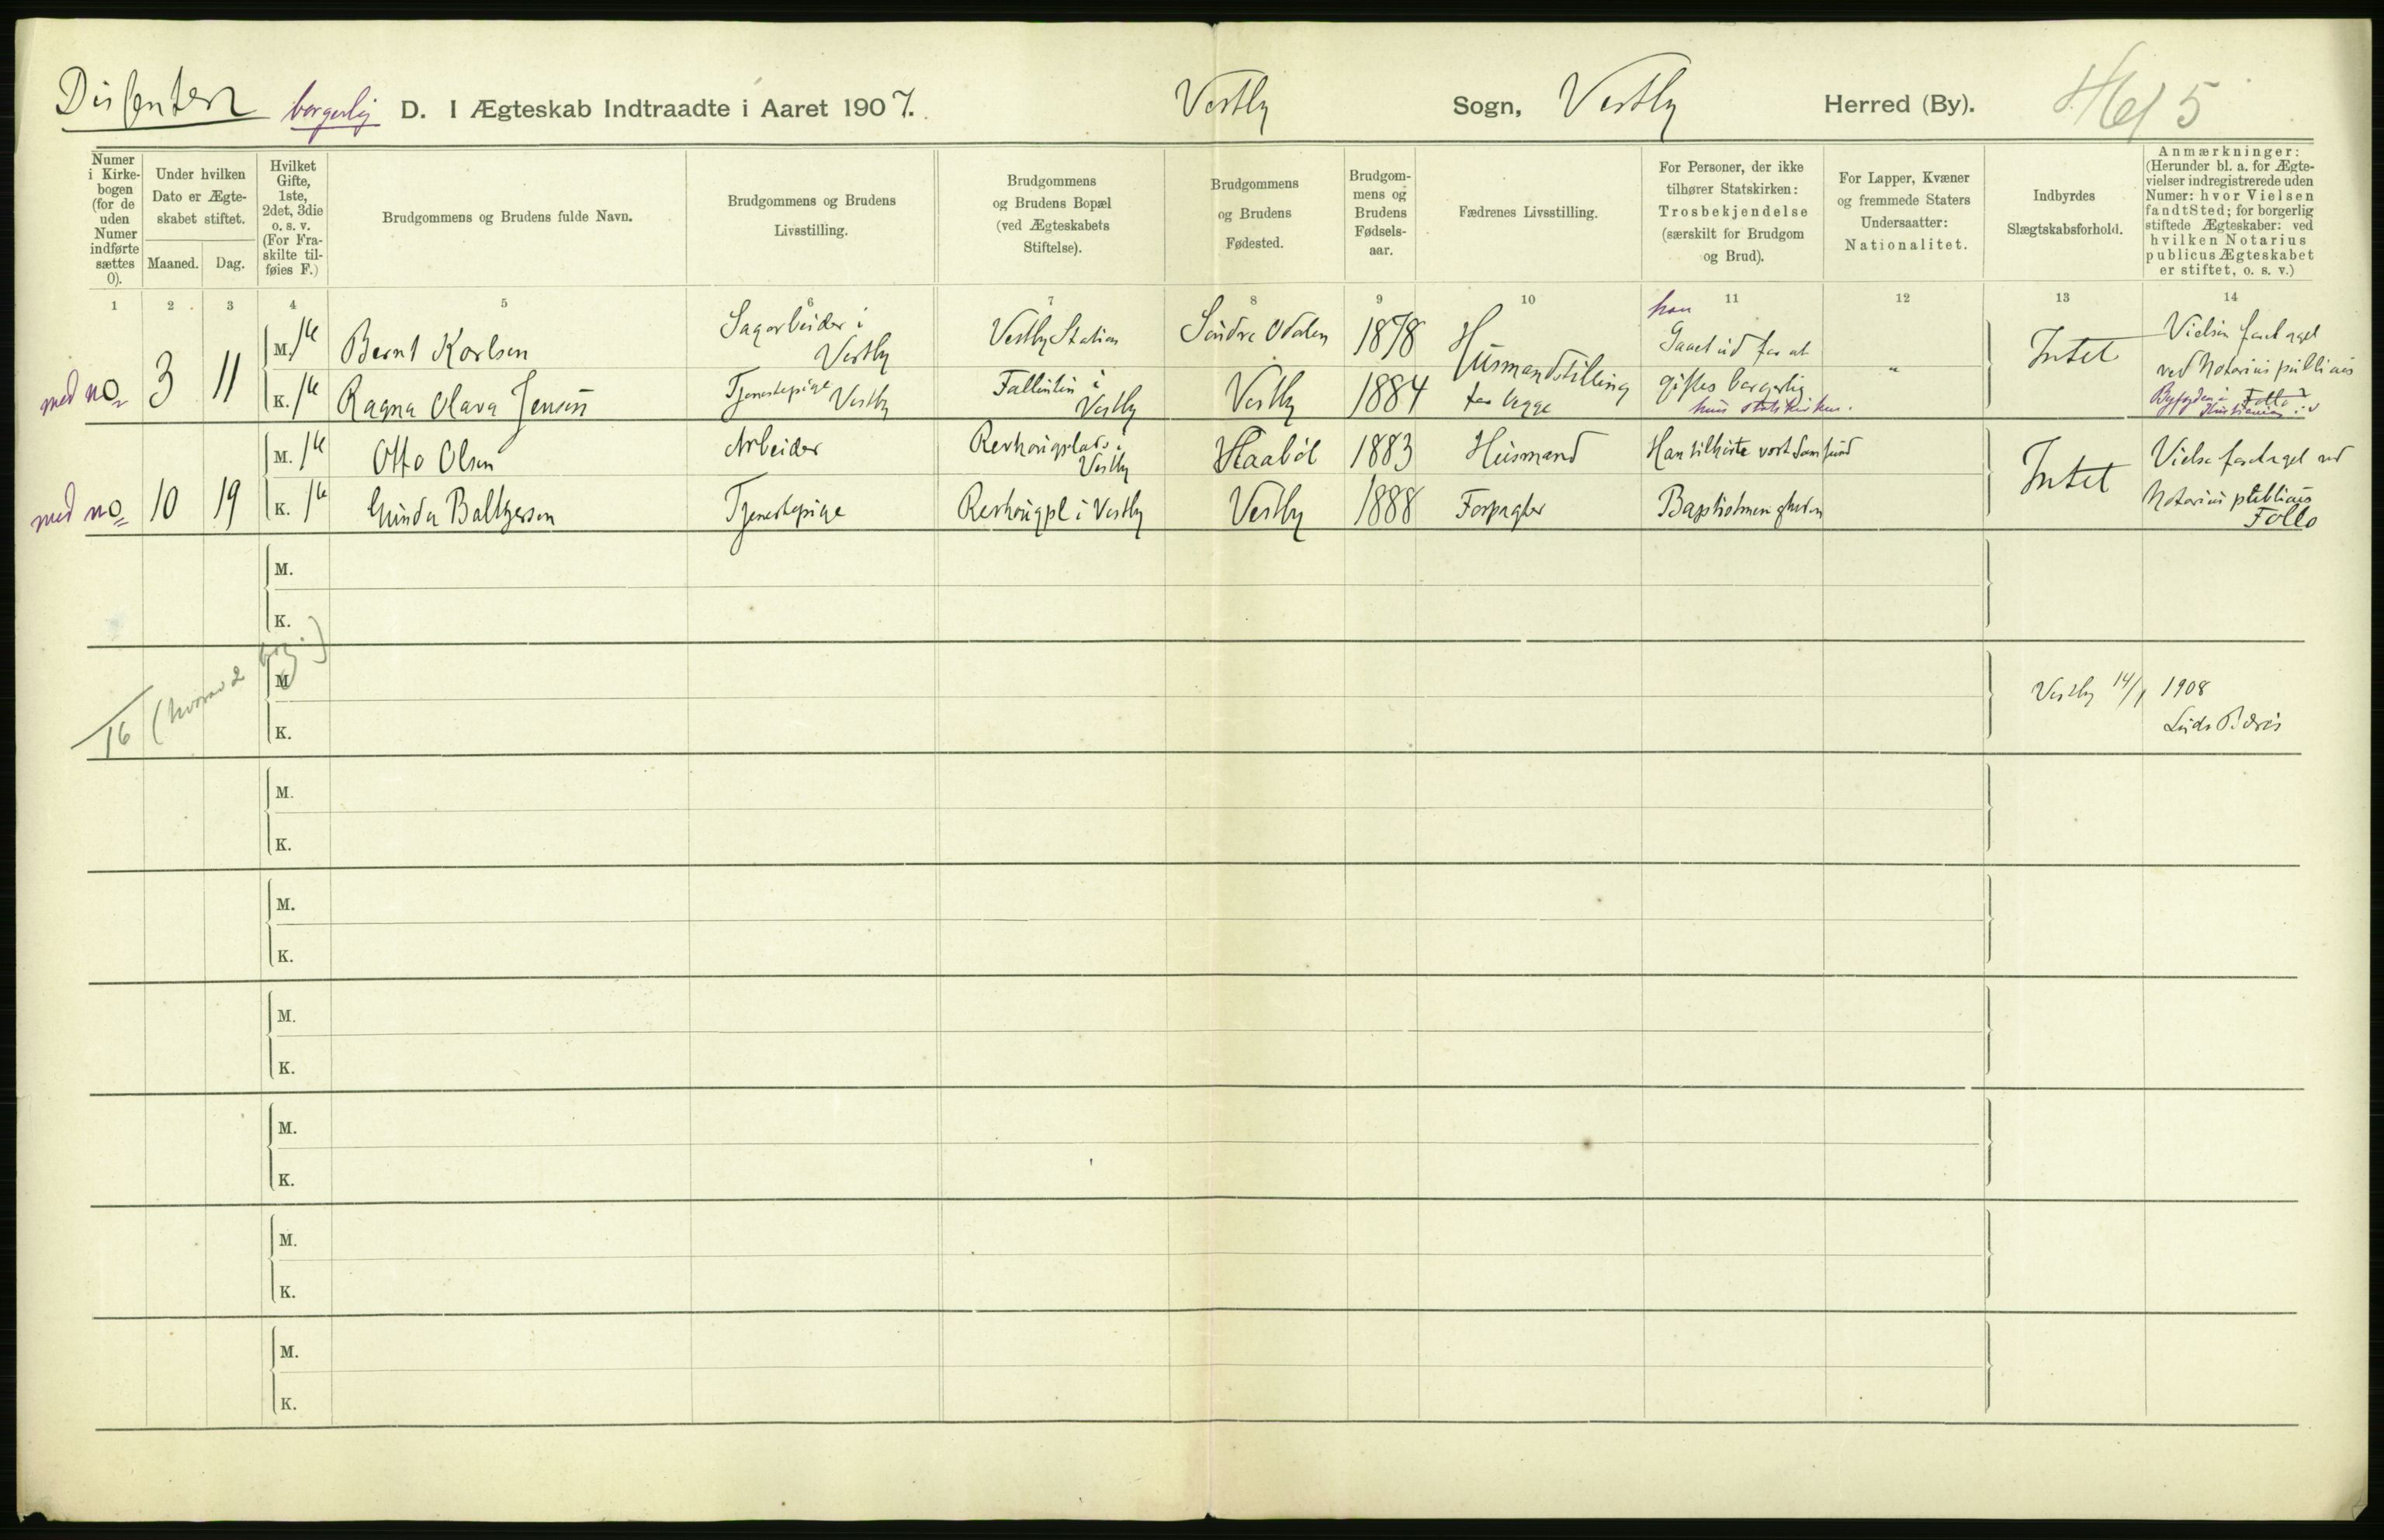 Dissenter borgerlig D. I Ægteskab Indtraadte i Aaret 1907. Vestby Sogn, Vestby Herred (By). 5
Numer i Kirkebogen (for de uden Numer indførte sættes 0).
Under hvilken Dato er Ægteskabet stiftet.
Maaned. Dag.
Hvilket Gifte, 1ste, 2det, 3die o. s. v. (For Fraskilte tilføies F.)
Brudgommens og Brudens fulde Navn.
Brudgommens og Brudens Livsstilling.
Brudgommens og Brudens Bopæl (ved Ægteskabets Stiftelse).
Brudgommens og Brudens Fødested.
Brudgommens og Brudens Fødselsaar.
Fædrenes Livsstilling.
For Personer, der ikke tilhører Statskirken: Trosbekjendelse (særskilt for Brudgom og Brud).
For Lapper, Kvæner og fremmede Staters Undersaatter: Nationalitet.
Indbyrdes Slægtskabsforhold.
Anmærkninger: (Herunder bl. a. for Ægtevielser indregistrerede uden Numer: hvor Vielsen fandt Sted; for borgerlig stiftede Ægteskaber: ved hvilken Notarius publicus Ægteskabet er stiftet, o. s. v.)
1 2 3 4 5 6 7 8 9 10 11 12 13 14
med no 3 11
M. 1ste Bernt Karlsen Sagarbeider i Vestby Vestby Station Søndre Odalen 1878 Husmandstilling han Gaaet ud for at " Intet Vielsen foretaget
K. 1ste Ragna Olava Jensen Tjenestepige Vestby i Vestby Vestby 1884 for begge giftes borgerlig ved Notarius publicus
hun statskirken. Follo
med no 10 19
M. 1ste Otto Olsen Arbeider Revhougplads i Vestby Haabøl 1883 Husmand Han tilhørte vort Samfund Intet Vielse foretaget ved
K. 1ste Gunda Baltzersen Tjenestepige Revhougpl i Vestby Vestby 1888 Forpagter Baptistmenigheden Notarius publicus
Follo
M.
K.
16 (hvorav 2 )
M.
K.
Vestby 14/1 1908
M.
K.
M.
K.
M.
K.
M.
K.
M.
K.
M.
K.